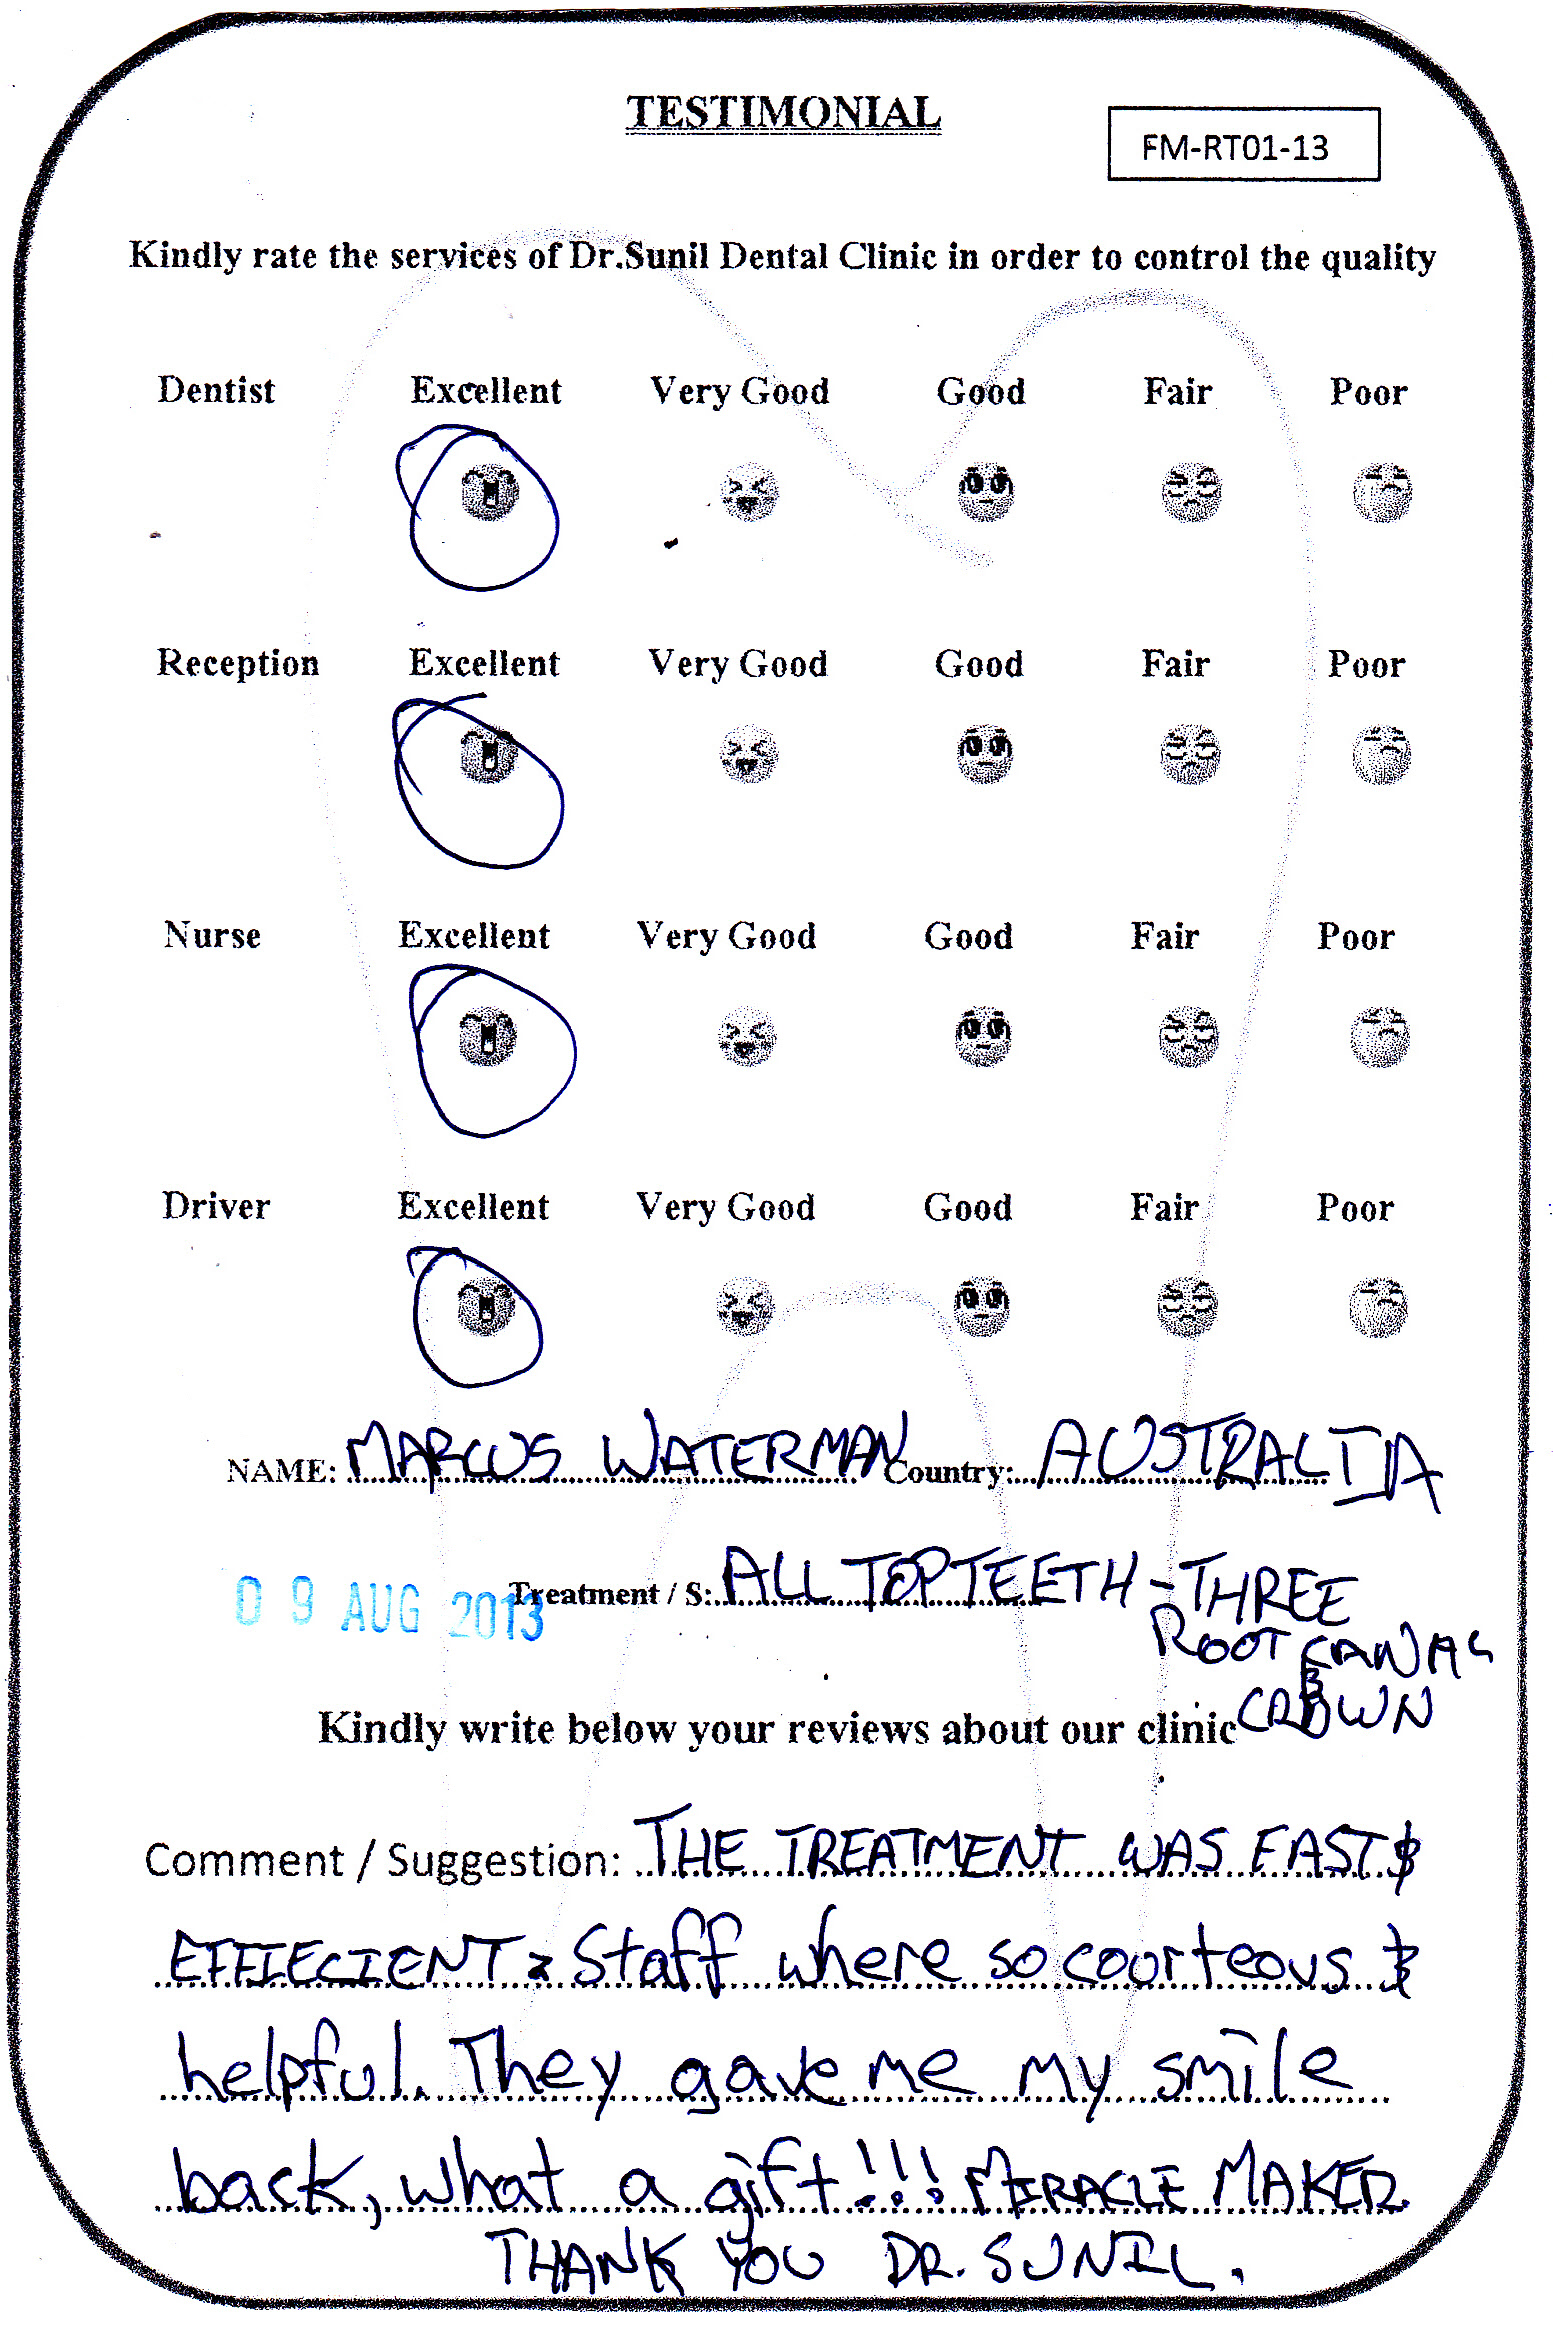 TESTIMONIAL
FM-RT01-13
Kindly rate the services of Dr.Sunil Dental Clinic in order to control the quality
Dentist Excellent Very Good Good Fair Poor
Reception Excellent Very Good Good Fair Poor
Nurse Excellent Very Good Good Fair Poor
Driver Excellent Very Good Good Fair Poor
NAME: MARCUS WATERMAN Country: AUSTRALIA
09 AUG 2013 Treatment / S: ALL TOP TEETH - THREE
ROOT CANALS
CROWN
Kindly write below your reviews about our clinic
Comment / Suggestion: THE TREATMENT WAS FAST &
EFFIECIENT & Staff where so courteous &
helpful. They gave me my smile
back, what a gift!!! MIRACLE MAKER.
THANK YOU DR. SUNIL.